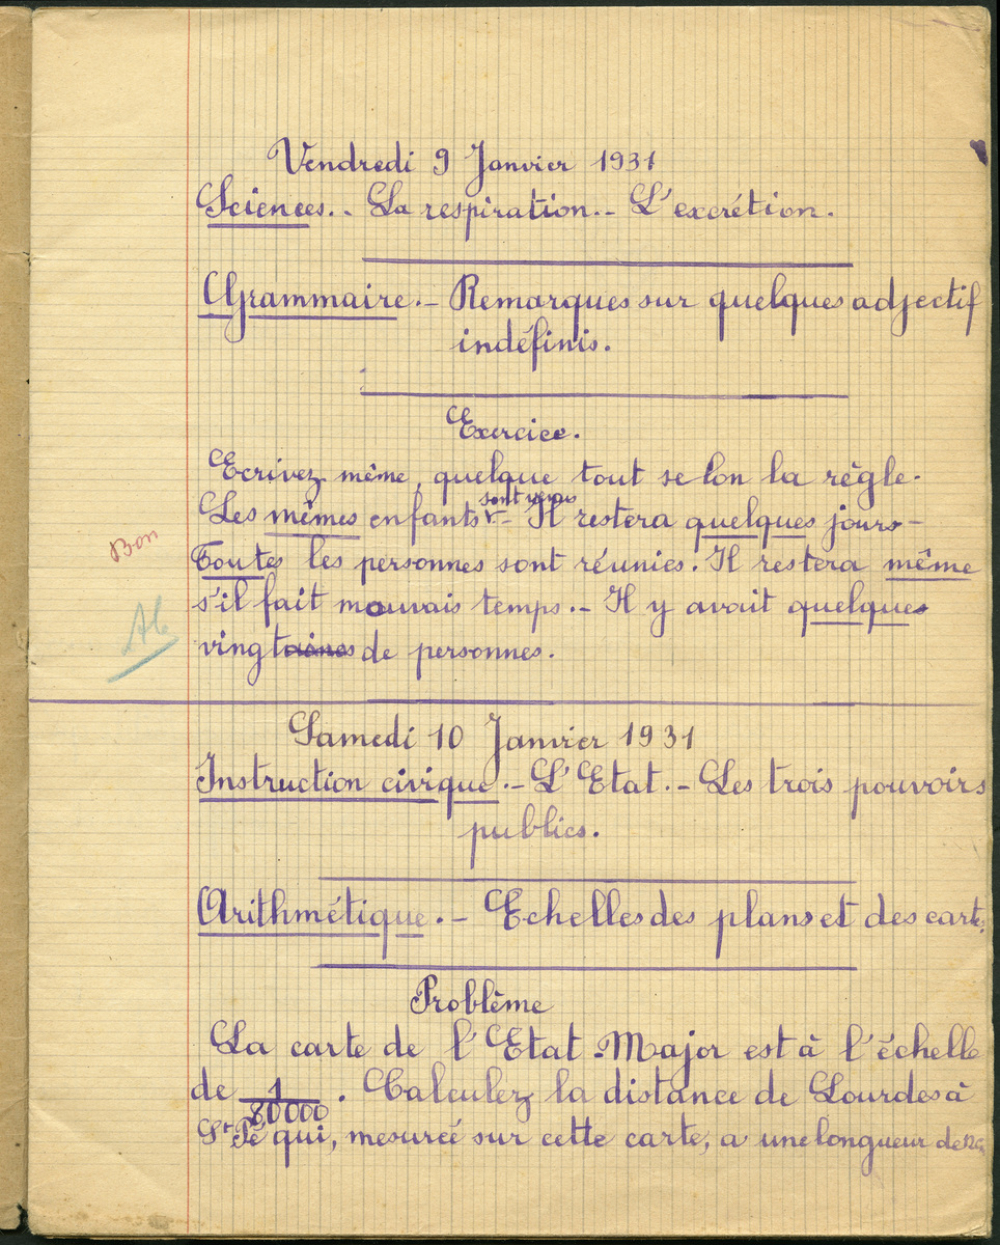 Vendredi 9 Janvier 1931
Sciences.- La respiration.- L'excrétion.
Grammaire.- Remarques sur quelques adjectif
indéfinis.
Exercice.
Ecrivez même, quelque tout selon la règle.
sont venus
Les mêmes enfants - Il restera quelques jours -
Bon
Toutes les personnes sont réunies. Il restera même
s'il fait mauvais temps.- Il y avait quelques
vingtaines de personnes.
Samedi 10 Janvier 1931
Instruction civique.- L'Etat.- Les trois pouvoirs
publics.
Arithmétique.- Echelles des plans et des carte
Problème
La carte de l'Etat-Major est à l'échelle
de 1/80000. Calculez la distance de Lourdes à
St Pé qui, mesurée sur cette carte, a une longueur de